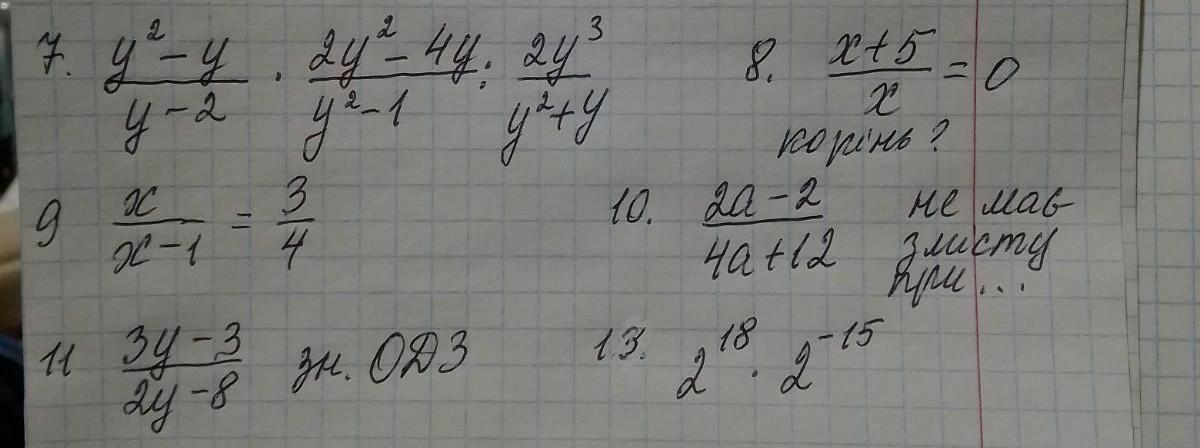 7. (y² - y)/(y - 2) · (2y² - 4y)/(y² - 1) : 2y³/(y² + y)
8. (x+5)/x = 0
корінь?
9 x/(x-1) = 3/4
10. (2a-2)/(4a+12) не має
змісту
при...
11 (3y-3)/(2y-8) зн. ОДЗ
13. 2¹⁸ · 2⁻¹⁵